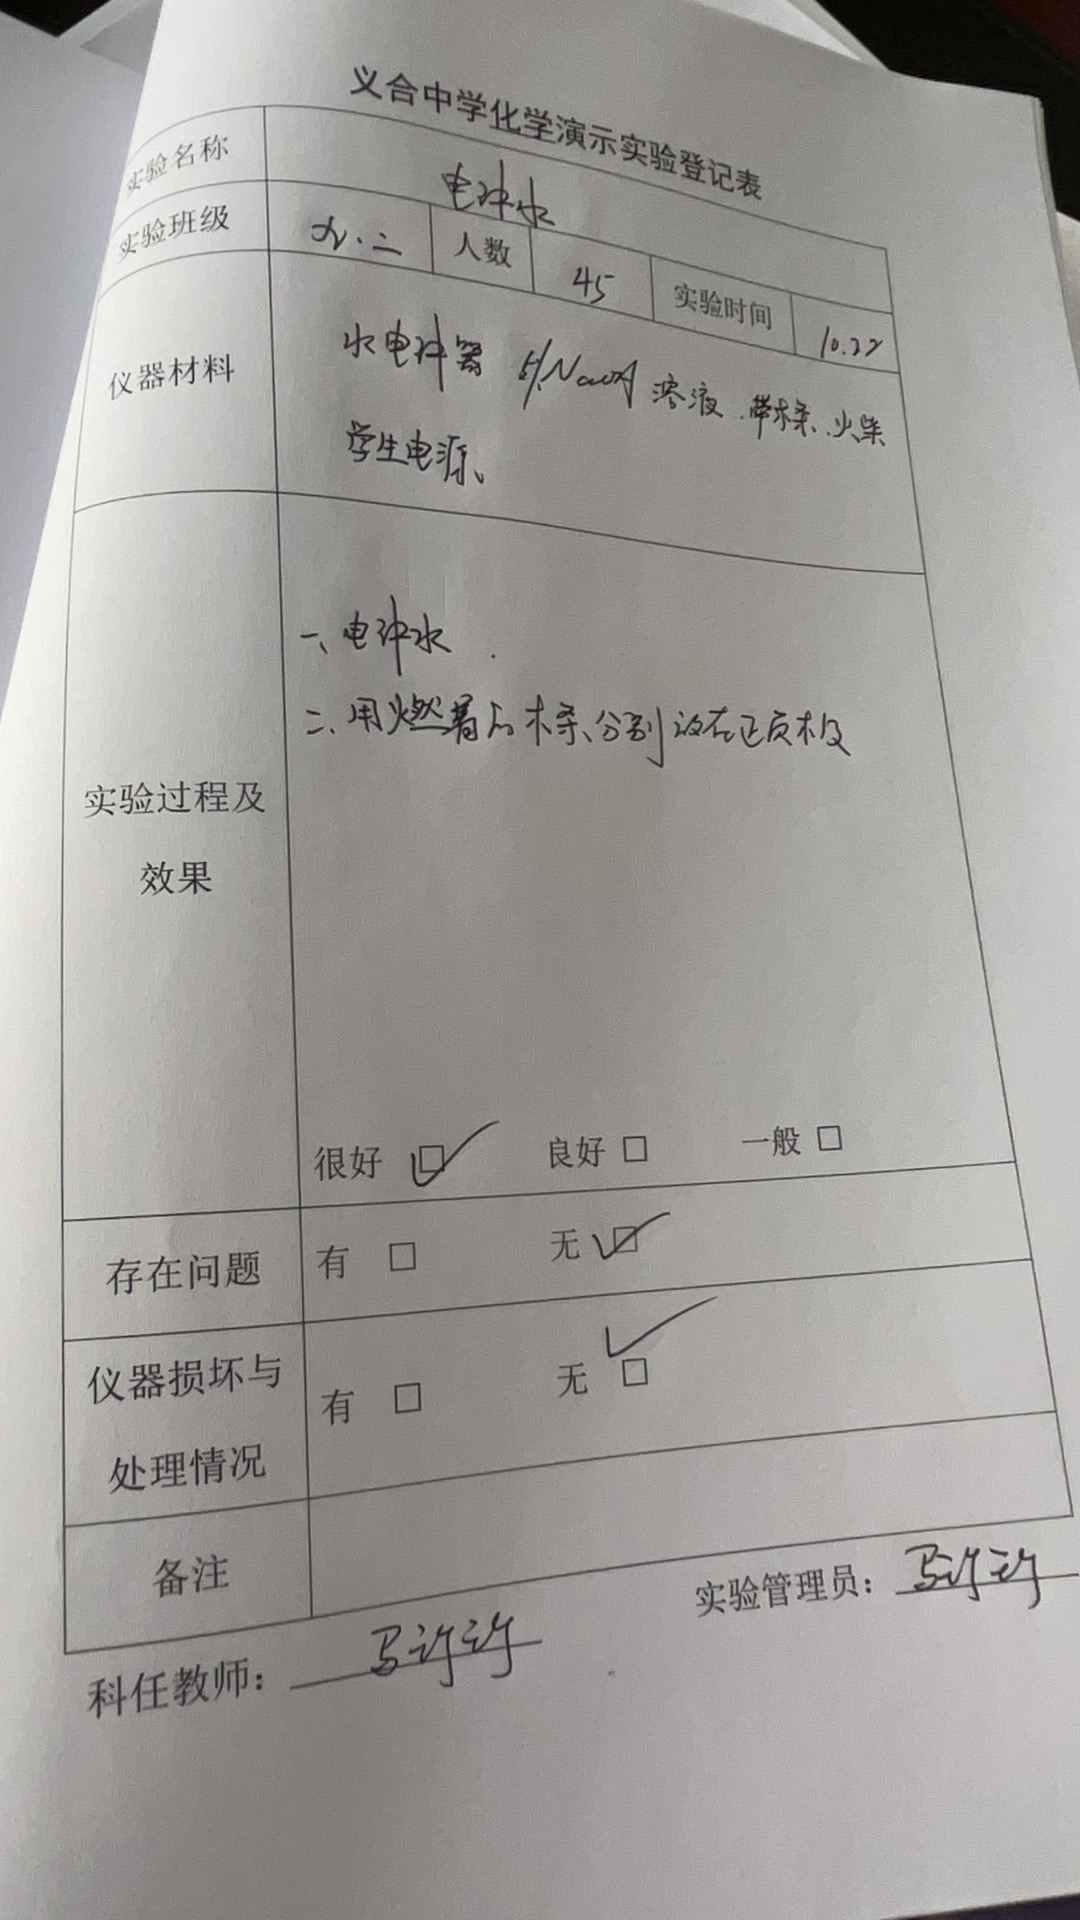 义合中学化学演示实验登记表
实验名称 电解水
实验班级 九.二 人数 45 实验时间 10.22
仪器材料 水电解器 5%NaOH 溶液、带木条、火柴
学生电源、
一、电解水
二、用燃着的木条、分别放在正负极
实验过程及
效果
很好 ☑ 良好 □ 一般 □
存在问题 有 □ 无 ☑
仪器损坏与
处理情况
有 □ 无 ☑
备注
科任教师： 马许许 实验管理员： 马许许